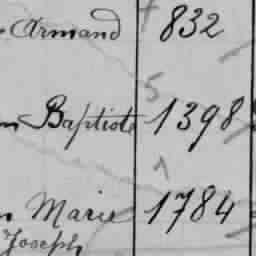 Armand 832
Baptiste 1398
Marie 1784
Joseph